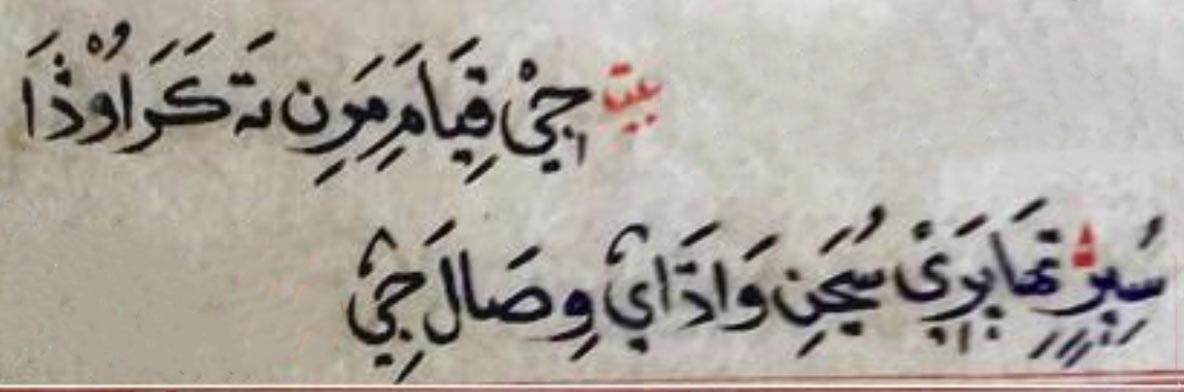 بيت جي قِيَامَ مِرَنِ تَه كَرَ اُوذَا
سُپِرِ تِهَا پَرَي سُڄَنِ وَادَائي وِصَالَ جِي